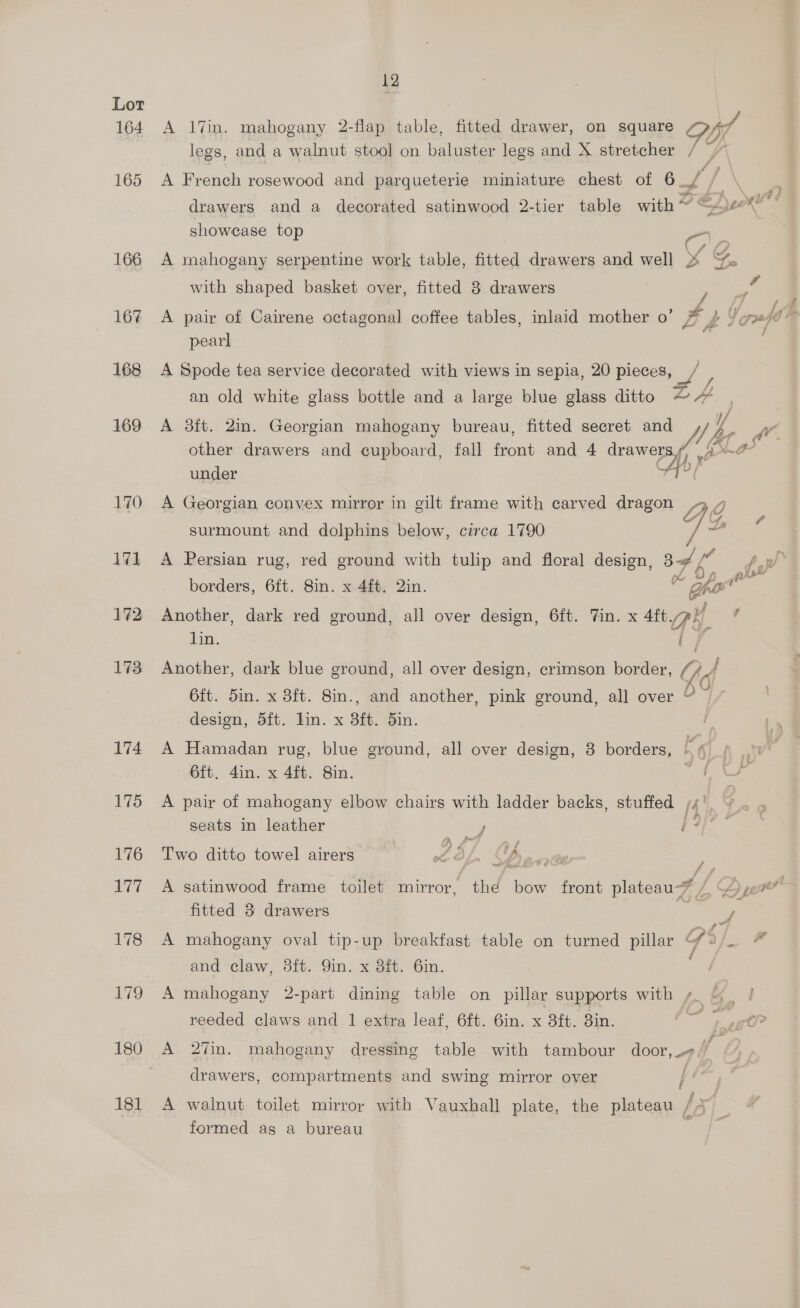 12
Lot
164 A 17in. mahogany 2-flap table, fitted drawer, on square
legs, and a walnut stool on baluster legs and X stretcher
165 A French rosewood and parqueterie miniature chest of 6
drawers and a decorated satinwood 2-tier table with
showcase top
166 A mahogany serpentine work table, fitted drawers and well
with shaped basket over, fitted 3 drawers
167 A pair of Cairene octagonal coffee tables, inlaid mother o'
pearl
168 A Spode tea service decorated with views in sepia, 20 pieces,
an old white glass bottle and a large blue glass ditto
169 A 3ft. 2in. Georgian mahogany bureau, fitted secret and
other drawers and cupboard, fall front and 4 drawers
under
170 A Georgian convex mirror in gilt frame with carved dragon
surmount and dolphins below, circa 1790
171 A Persian rug, red ground with tulip and floral design, 3
borders, 6ft. 8in. x 4ft. 2in.
172 Another, dark red ground, all over design, 6ft. 7in. x 4ft.
1in.
173 Another, dark blue ground, all over design, crimson border,
6ft. 5in. x 3ft. 8in., and another, pink ground, all over
design, 5ft. 1in. x 3ft. 5in.
174 A Hamadan rug, blue ground, all over design, 3 borders,
6ft. 4in. x 4ft. 8in.
175 A pair of mahogany elbow chairs with ladder backs, stuffed
seats in leather
176 Two ditto towel airers
177 A satinwood frame toilet mirror, the bow front plateau
fitted 3 drawers
178 A mahogany oval tip-up breakfast table on turned pillar
and claw, 3ft. 9in. x 3ft. 6in.
179 A mahogany 2-part dining table on pillar supports with
reeded claws and 1 extra leaf, 6ft. 6in. x 3ft. 3in.
180 A 27in. mahogany dressing table with tambour door,
drawers, compartments and swing mirror over
181 A walnut toilet mirror with Vauxhall plate, the plateau
formed as a bureau